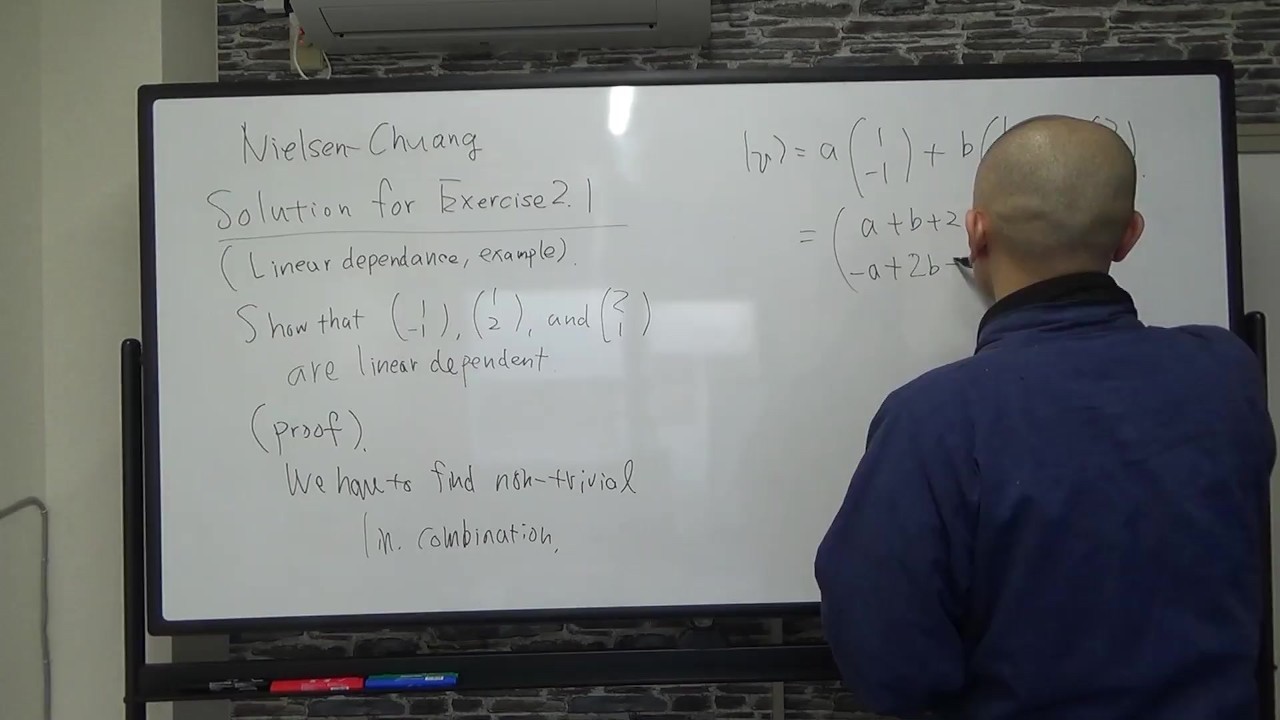 Nielsen-Chuang
Solution for Exercise 2.1
(Linear dependance, example).
Show that (1 -1), (1 2), and (2 1)
are linear dependent
(proof).
We have to find non-trivial
lin. combination,
|v> = a (1 -1) + b (
= ( a + b + 2
-a + 2b +